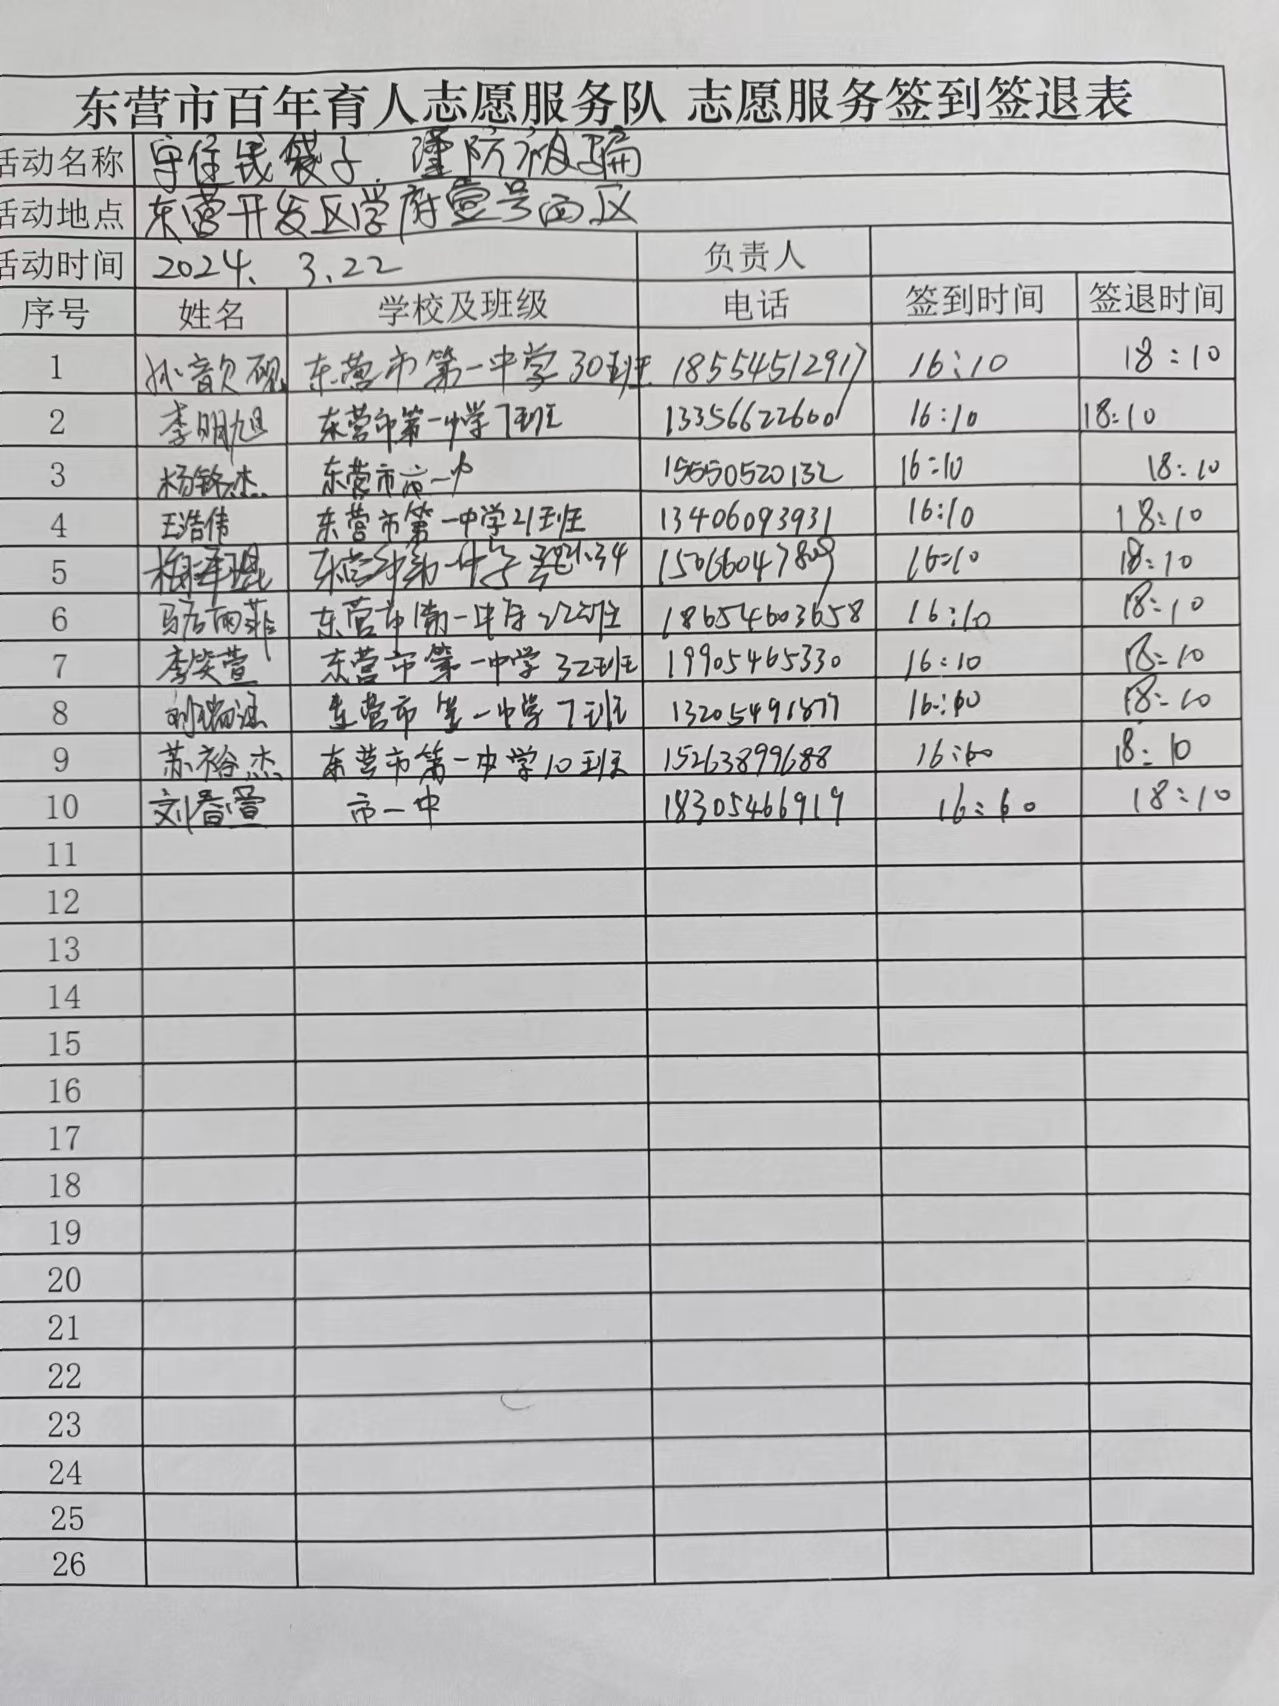 东营市百年育人志愿服务队 志愿服务签到签退表
活动名称 守住钱袋子 谨防被骗
活动地点 东营开发区学府壹号西区
活动时间 2024. 3.22 负责人
序号 姓名 学校及班级 电话 签到时间 签退时间
1 孙歆砚 东营市第一中学30班 18554512917 16:10 18:10
2 李明旭 东营市第一中学7班 13356622600 16:10 18:10
3 杨铭杰 东营市一中 15550520132 16:10 18:10
4 王浩伟 东营市第一中学21班 13406093931 16:10 18:10
5 东营市第一中学 15066047809 16:10 18:10
6 东营市第一中学22班 18654603658 16:10 18:10
7 李笑萱 东营市第一中学32班 19905465330 16:10 18:10
8 刘瑞涵 东营市第一中学7班 13205491877 16:60 18:10
9 苏裕杰 东营市第一中学10班 15263899688 16:60 18:10
10 刘春萱 市一中 18305466919 16:60 18:10
11
12
13
14
15
16
17
18
19
20
21
22
23
24
25
26